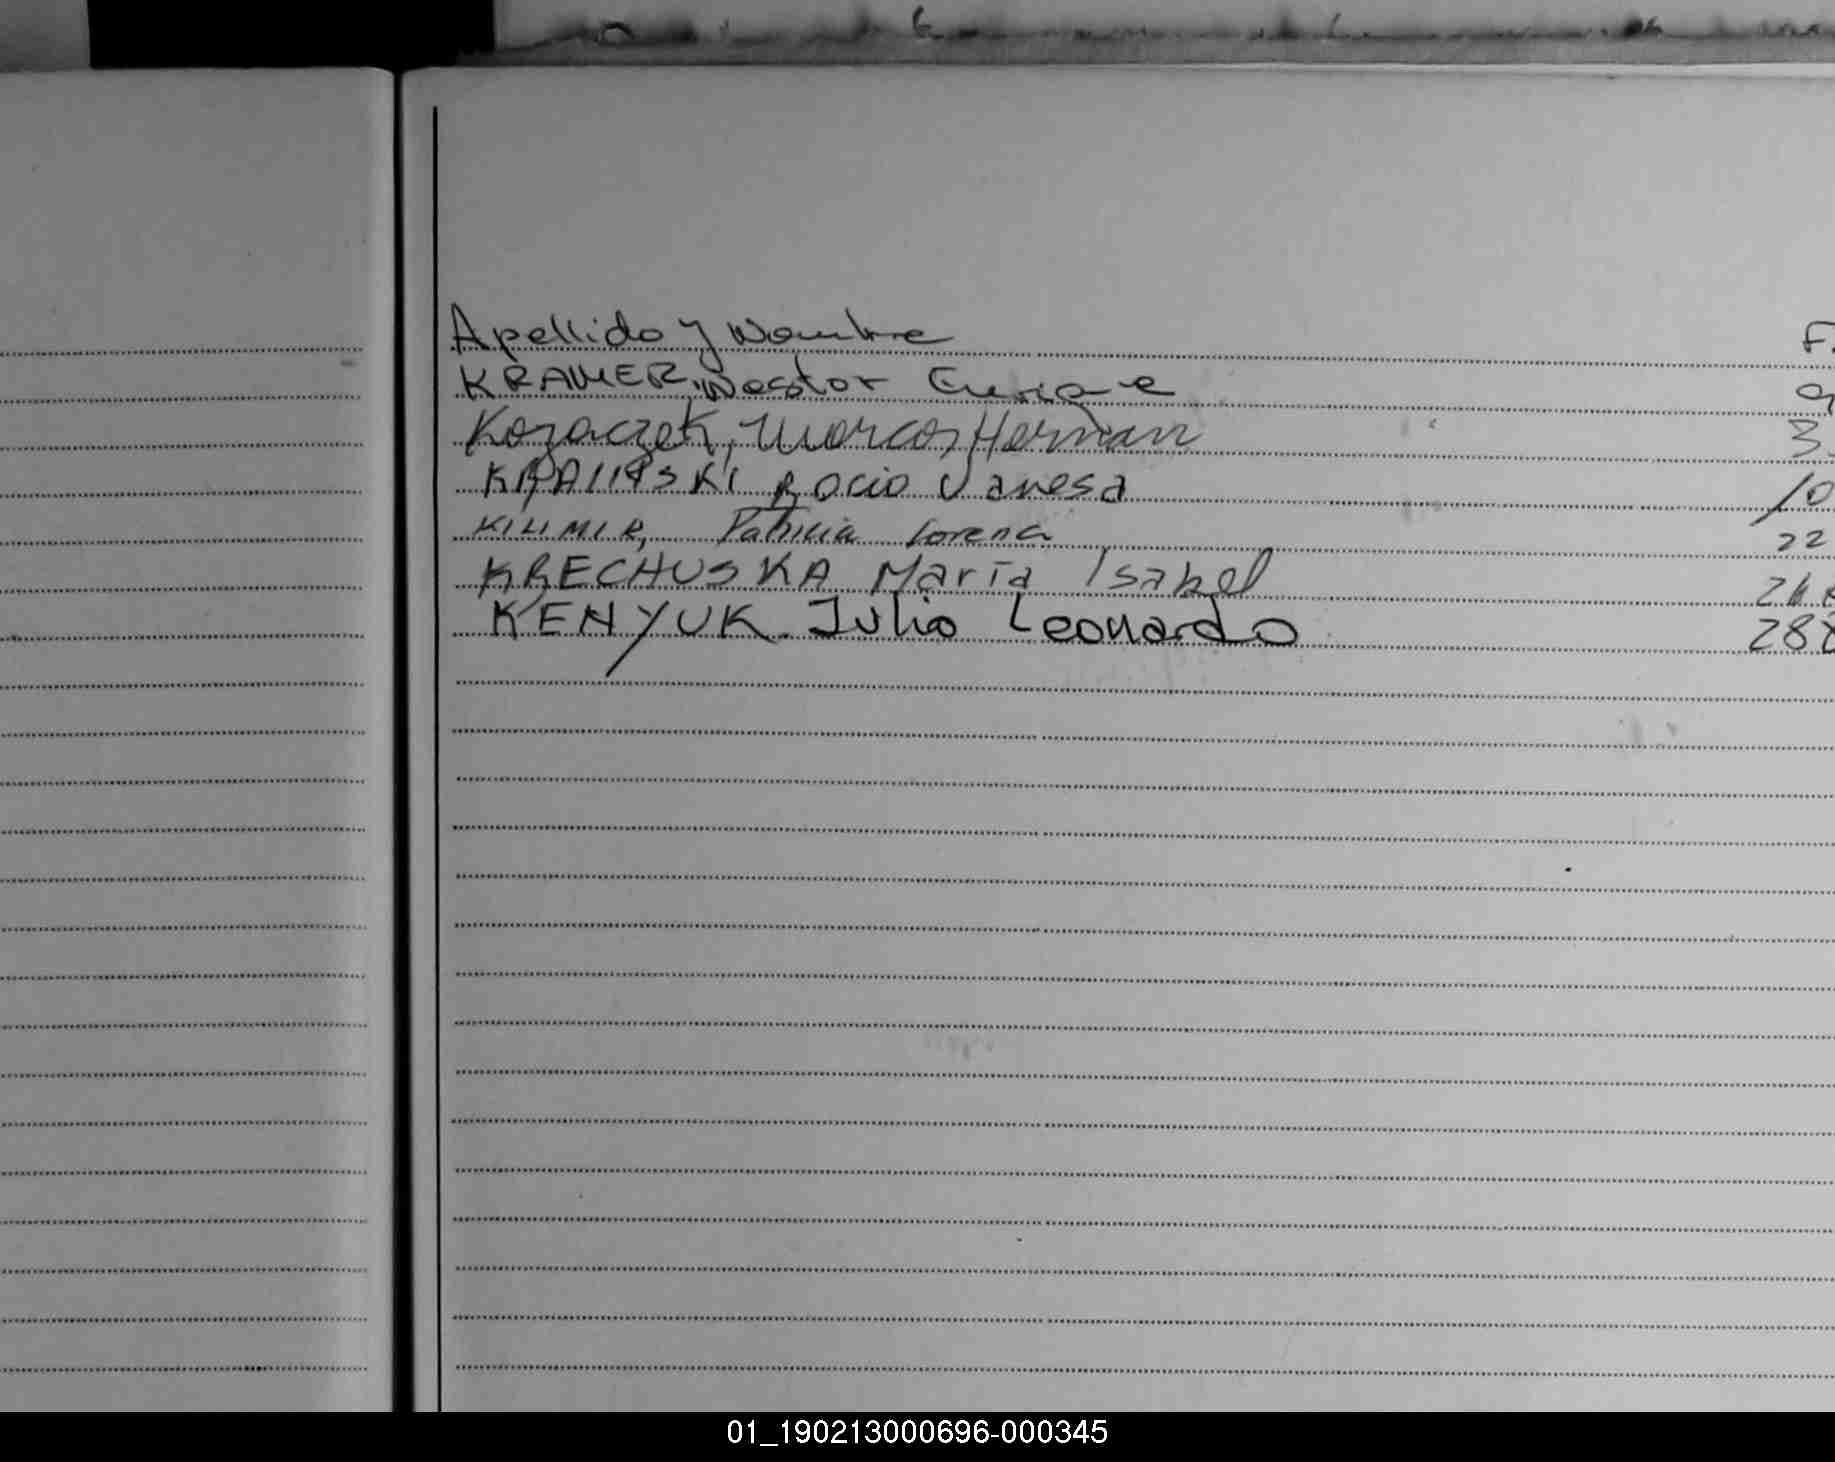 Apellido y Nombre F.
KRAMER, Nestor Enrique 9
Kozaczek, Marcos Hernan 3
Rocio Vanesa 10
Patricia Lorena 22
KRECHUSKA María Isabel 26
KENYUK Julio Leonardo 288
01_190213000696-000345